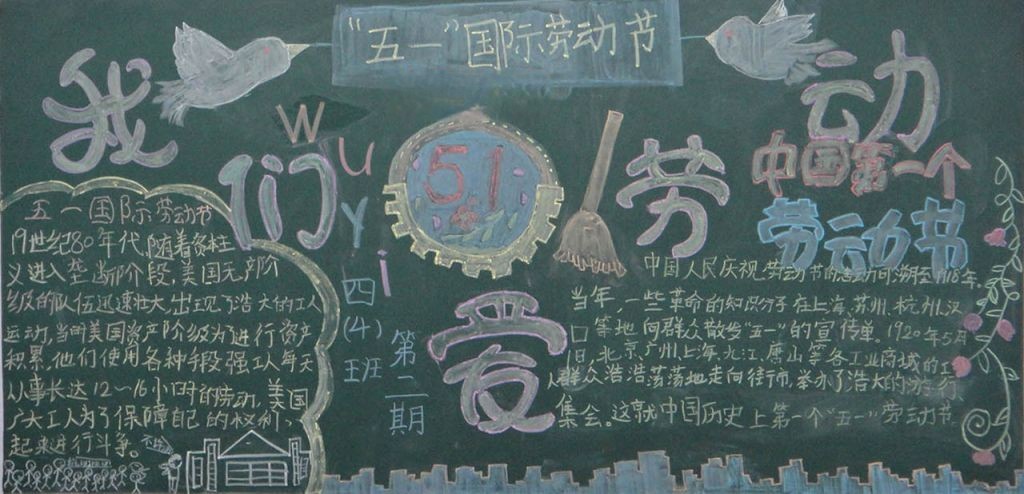 “五一”国际劳动节
我们爱劳动
wu yi
51
四(4)班
第二期
五一国际劳动节
19世纪80年代,随着资本主
义进入垄断阶段,美国无产阶
级的队伍迅速壮大,出现了浩大的工人
运动,当时美国资产阶级为了进行资产
积累,他们使用各种手段强工人每天
从事长达12~16小时的劳动,美国
广大工人为了保障自己的权利,
起来进行斗争。
中国第一个
劳动节
中国人民庆祝劳动节的活动可溯至1918年,
当年,一些革命的知识分子在上海、苏州、杭州、汉
口等地向群众散发“五一”的宣传单。1920年5月
1日,北京、广州、上海、九江、唐山等各工业商城的工
人群众浩浩荡荡地走向街市,举办了浩大的游行、
集会。这就中国历史上第一个“五一”劳动节